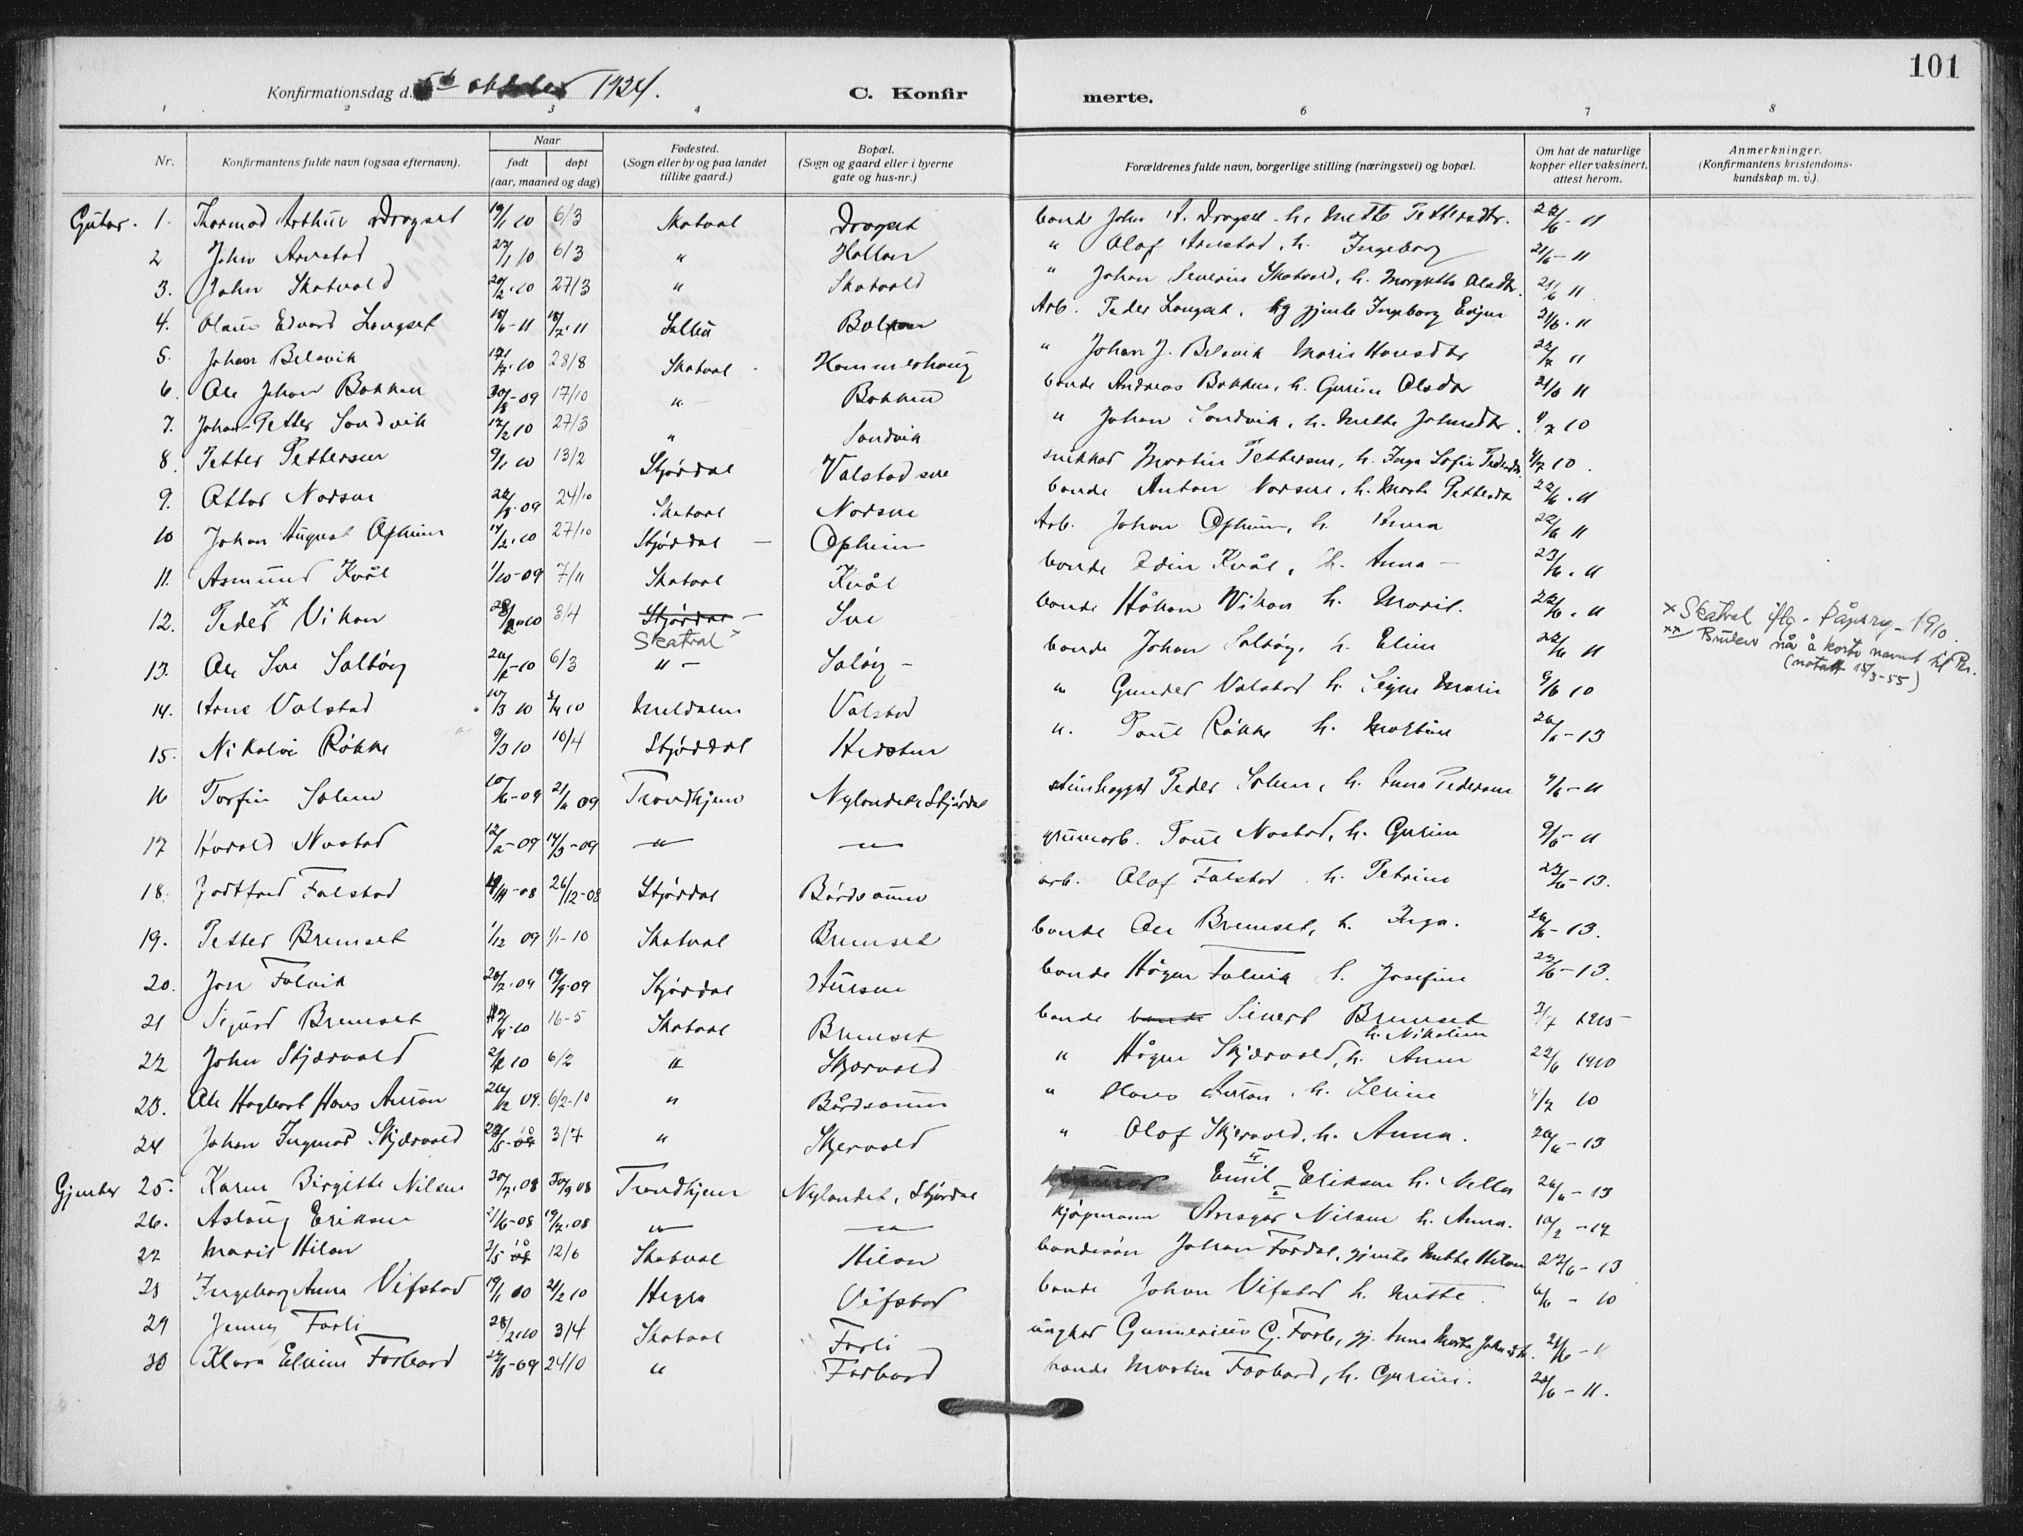 101
Konfirmationsdag d. 5te oktober 1924.
C. Konfirmerte.
1 2 3 4 6 7 8
Nr.
Konfirmantens fulde navn (ogsaa efternavn).
Naar
født
døpt
(aar, maaned og dag)
Fødested.
(Sogn eller by og paa landet
tillike gaard.)
Bopæl.
(Sogn og gaard eller i byerne
gate og hus-nr.)
Forældrenes fulde navn, borgerlige stilling (næringsvei) og bopæl.
Om hat de naturlige
kopper eller vaksinert,
attest herom.
Anmerkninger.
(Konfirmantens kristendoms-
kundskap m. v.).
Gutar. 1. Thormod Arthur Drogset 19/1 10 6/3 Skatval Drogset bonde John A. Drogset h. Mette Pettersdtr. 22/6 - 11
2 John Arnstad 27/1 10 6/3 " Hallan " Olaf Arnstad, h. Ingeborg 21/6 - 11
3. John Skatvold 20/2 . 10 27/3 " Skatvold " Johan Severin Skatvold, h. Margrethe Olsdtr. 21/6 11
4. Olaus Edvard Langset 15/6 - 11 18/7 . 11 Bolkan Arb. Peder Langset, og gjente Ingeborg 21/6 . 11
5. Johan Belsvik 10 28/8 Skatval Hammerhaug " Johan J. Belsvik Marie Hansdtr 22/7 11
6. Ole Johan Bakken 30/8 - 09 17/10 " Bakken bonde Andreas Bakken, h. Gurine Olsdtr 21/6 11
7. Johan Petter Sandvik 17/2 10 27/3 " Sandvik " Johan Sandvik, h. Mette Johnsdtr. 4/7 10
8. Petter Pettersen 9/1 10 13/2 Stjørdal Valstad snekker Martin Pettersen, h. Inga Sofie 4/7 10.
9. Ottar Nordsve 09 24/10 Skatval bonde Anton h. Marta 22/6 . 11
10 Johan August Opheim 14/2 . 10 27/10 Stjørdal - Opheim Arb. Johan Opheim, h. Anna 22/6 11
11. Asmund Kvål 1/10 - 09 7/11 Skatval Kvål bonde Edin Kvål, h. Anna - 23/6 . 11
12. Peder xx Vikan 28/2 - 10 3/4 Stjørdal - Sve bonde Håkon Vikan h. Marit. 22/6 . 11
Skatval x
x Skatval iflg. dåpsreg. 1910.
xx Bruker nå å korte navnet til Per.
(notat 15/3-55)
13. Ole Sve Salbøg 20/1 - 10 6/3 " - Saløig - bonde Johan Salbøg, h. Elin 22/6 11
14. Arne Valstad 10/3 10 10 Meldalen Valstad " Gunder Valstad h. Signe Marie 9/6 10
15. Nikolai Røkke 9/3 10 10/4 Stjørdal " Paul Røkke h. 26/6 - 13
16 Torfin Solem 10/6 - 09 09 Trondhjem Nylandet Stjørdal stenhugger Peder Solem, h. Anna Pedersen 9/6 - 11
17 Harald Nastad 12/2 - 09 14/3 - 09 " " gruvearb. Paul Nastad, h. Gurine 9/6 - 11
18. Gottfred Falstad 4/11 - 08 26/12 - 08 Stjørdal Bårdsaune arb. Olaf Falstad h. Petrine 23/6 - 13.
19. Petter Bremset 1/12 09 1/1 - 10 Skatval Bremset bonde Ole Bremset, h. Inga. 26/6 - 13.
20. Jon Falvik 20/7 . 09 19/9 . 09 Stjørdal bonde Hågen Falvik h. Josefine 23/6 - 13.
21 Sigurd Bremset 10 16 - 5 Skatval Bremset bonde bonde Sivert Bremset 3/7 1915
h. Nikoline
22 John Skjærvold 2/1 10 6/2 " Skjervold " Hågen Skjærvold, h. Anna 22/6 1910
23. Ole Hagbart Hans Auran 26/12 09. 6/2-10 " Bårdsaune " Hans Auran, h. Serine 4/7 10
24 Johan Ingmar Skjærvold 10 3/7 " Skjervold " Olaf Skjervold, h. Anna. 26/6 - 13
Gjenter 25. Karen Birgitte Nilsen 30/7 . 08 30/9 08 Trondhjem Nylandet, Stjørdal Emil Eriksen h. Nella 26/6 - 13
26. Aslaug Eriksen 2/6 - 08 19/7 . 08 " " kjøpmann Ansgar Nilsen h. Anna. 10/2 - 17
27 Marit Hilan 3/5 10 12/6 Skatval Hilan bondesøn Johan Fordal, gjente Mette Hilan 27/6 - 13
28 Ingeborg Anna Vifstad 19/1 10 21/2 10 Hegra Vifstad bonde Johan Vifstad h. Mette. 6/6 - 10
29 Jenny Forli 28/2 . 10 3/4 Skatval Forli ungkar Gunnerius G. Forli, gj. Anna Marta Johnsdtr. 21/6 - 11
30 Klara Eline Forbord 09 24/10 " Forbord bonde Martin Forbord, h. Gurine. 22/6 - 11.